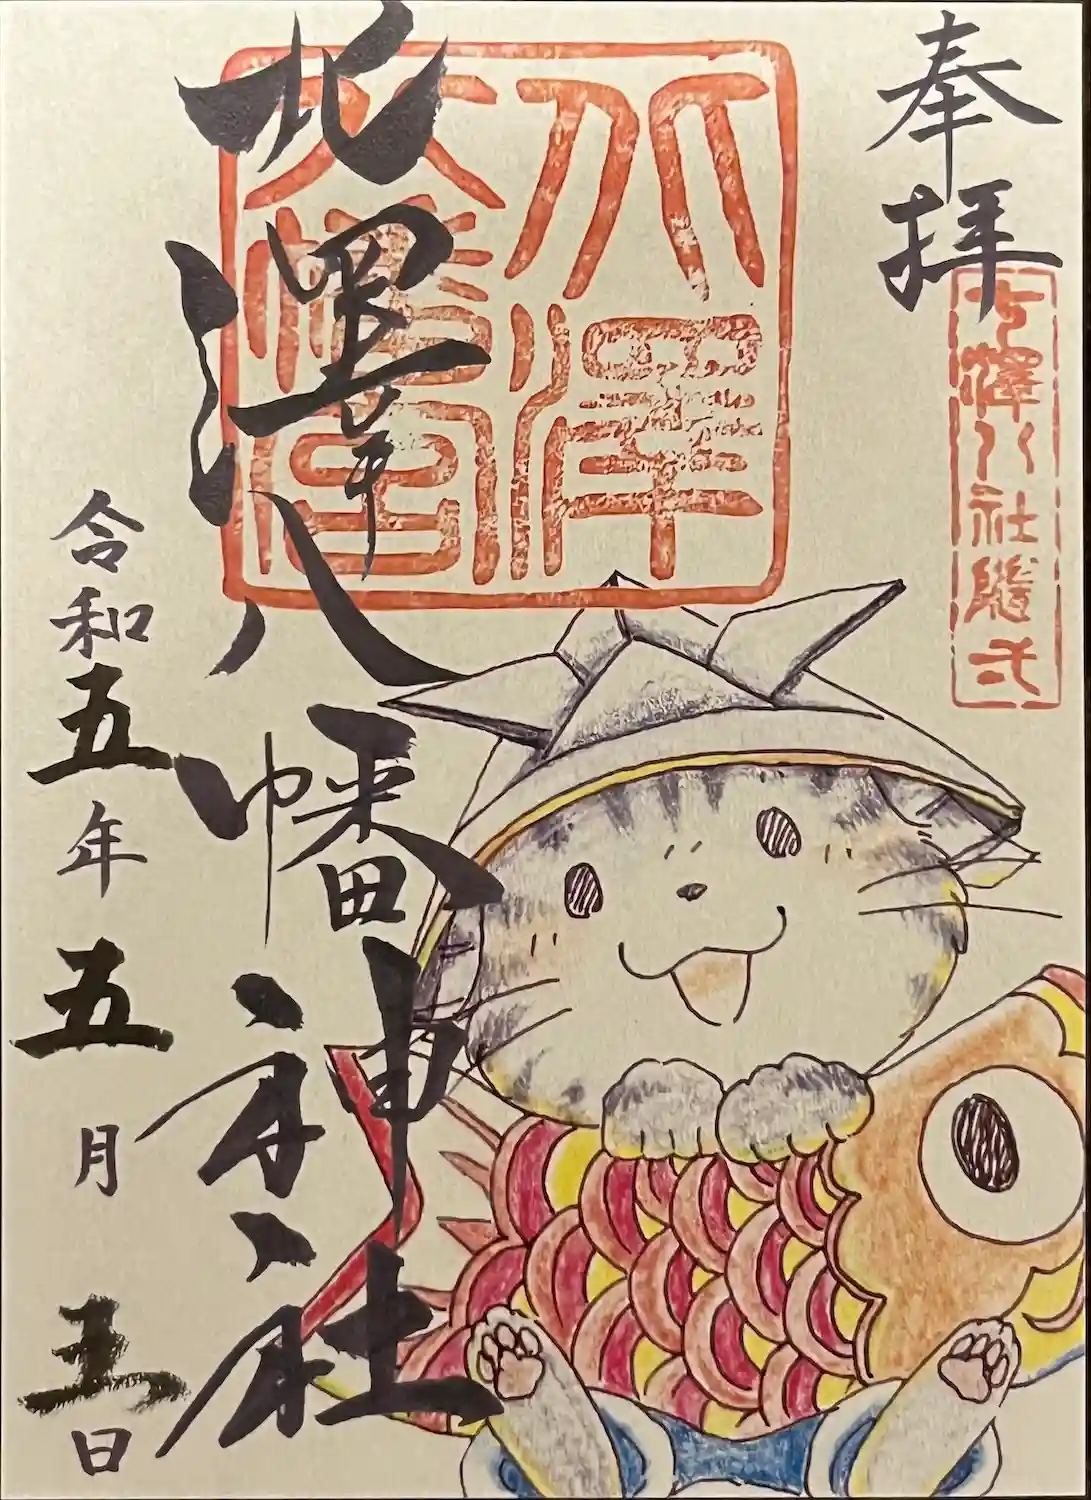 奉拝
七澤八社隨弌
北澤
八幡宮
北澤八幡神社
令和五年五月五日